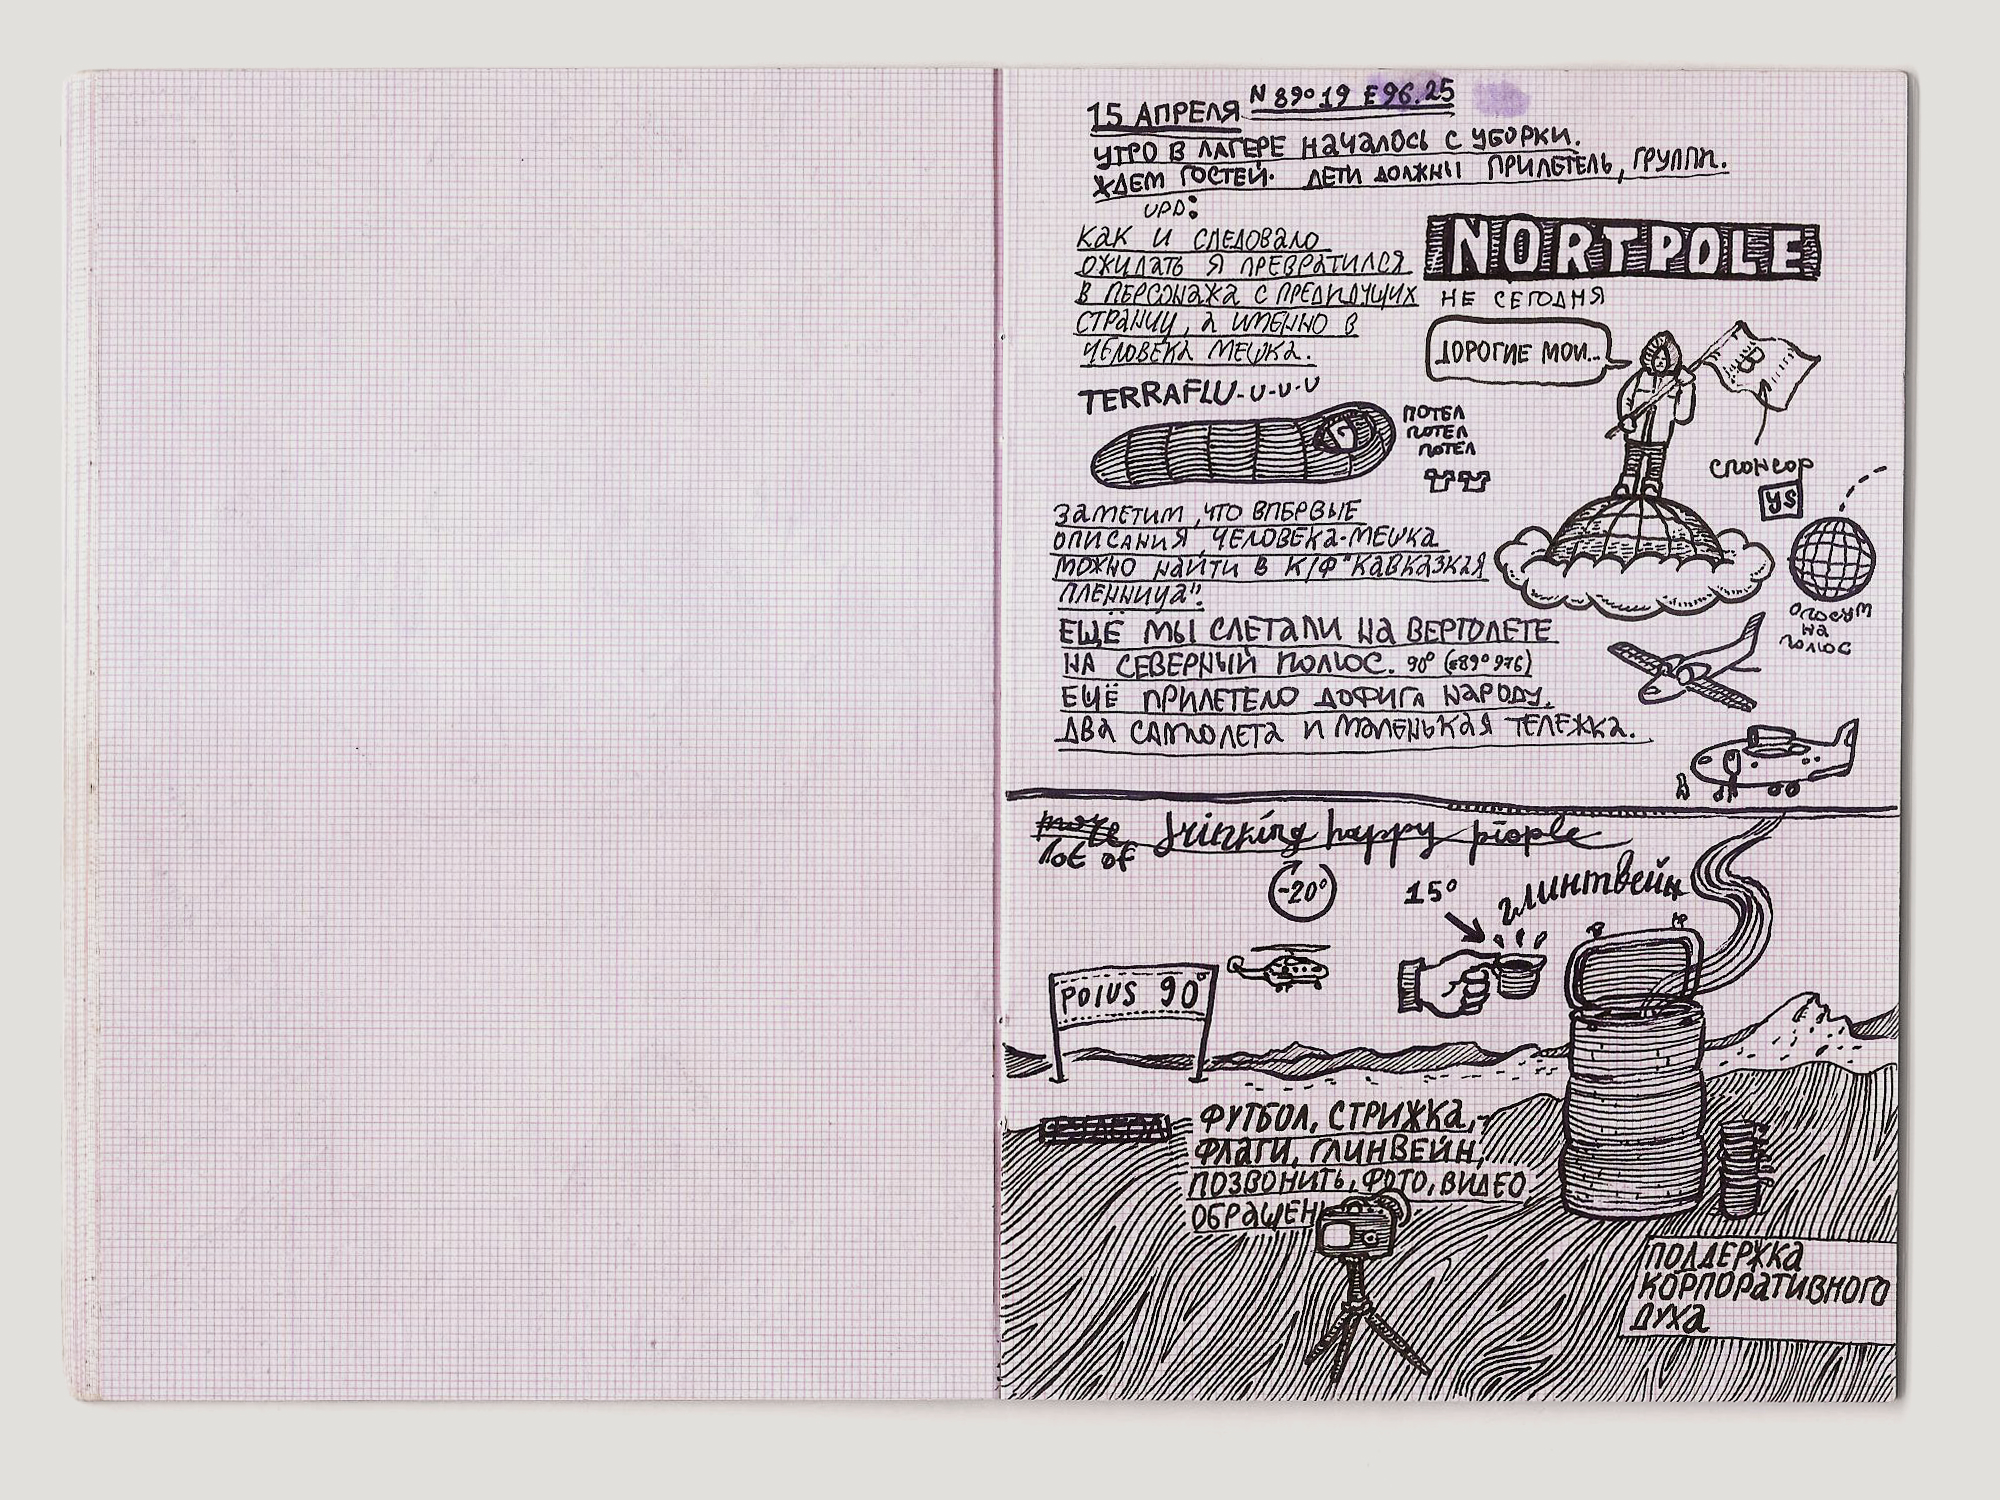 15 АПРЕЛЯ N 89° 19 E 96.25
УТРО В ЛАГЕРЕ НАЧАЛОСЬ С УБОРКИ.
ЖДЕМ ГОСТЕЙ. ДЕТИ ДОЛЖНЫ ПРИЛЕТЕЛЬ, ГРУППЫ.
UPD:
КАК И СЛЕДОВАЛО
ОЖИДАТЬ Я ПРЕВРАТИЛСЯ
В ПЕРСОНАЖА С ПРЕДИДУЩИХ
СТРАНИЦ, А ИМЕННО В
ЧЕЛОВЕКА МЕШКА.
NORTPOLE
НЕ СЕГОДНЯ
ДОРОГИЕ МОИ...
TERRAFLU-U-U-U
ПОТЕЛ
ПОТЕЛ
ПОТЕЛ
СПОНСОР
YS
ЗАМЕТИМ, ЧТО ВПЕРВЫЕ
ОПИСАНИЯ ЧЕЛОВЕКА-МЕШКА
МОЖНО НАЙТИ В К/Ф "КАВКАЗКАЯ
ПЛЕННИЦА".
ОПОСУМ
НА
ПОЛЮС
ЕЩЁ МЫ СЛЕТАЛИ НА ВЕРТОЛЕТЕ
НА СЕВЕРНЫЙ ПОЛЮС. 90° (≈89° 976)
ЕЩЁ ПРИЛЕТЕЛО ДОФИГА НАРОДУ.
ДВА САМОЛЕТА И МАЛЕНЬКАЯ ТЕЛЕЖКА.
more
lot of drinking happy piople
-20°
15°
глинтвейн
POLUS 90°
ФУТБОЛ, СТРИЖКА,
ФЛАГИ, ГЛИНВЕЙН,
ПОЗВОНИТЬ, ФОТО, ВИДЕО
ОБРАЩЕН
ПОДДЕРЖКА
КОРПОРАТИВНОГО
ДУХА